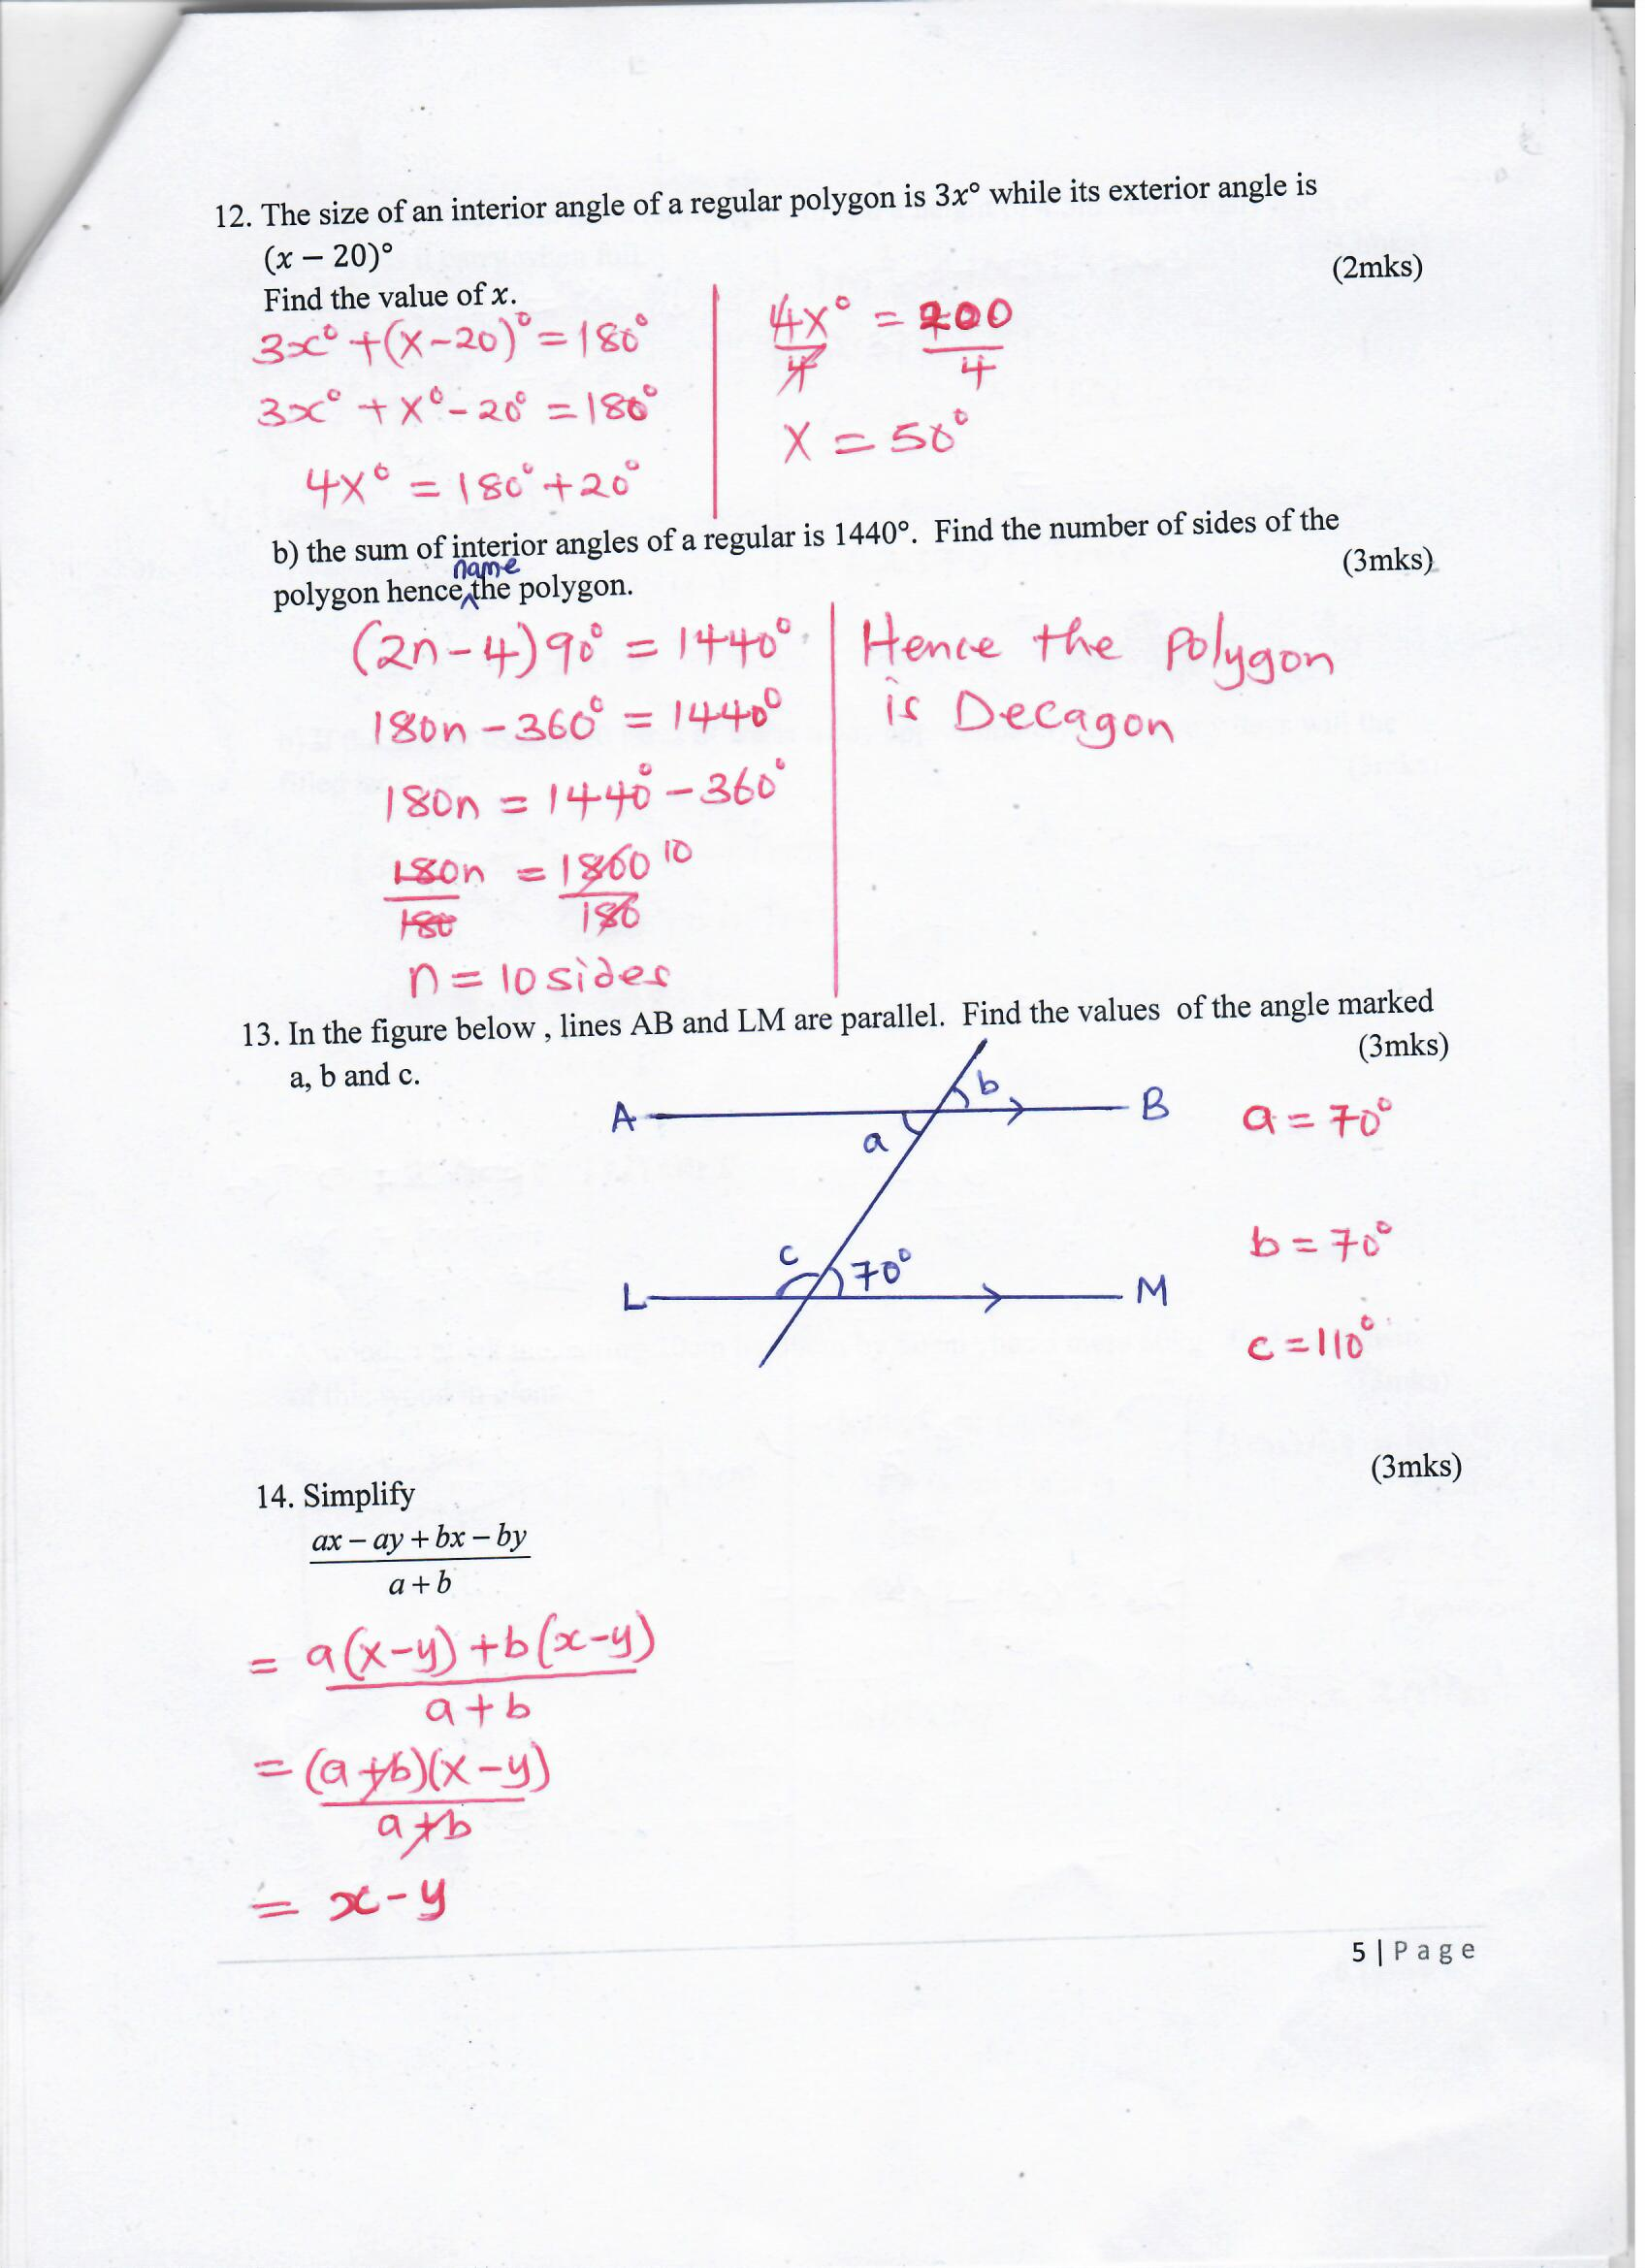 12. The size of an interior angle of a regular polygon is 3x° while its exterior angle is
(x − 20)°
(2mks)
Find the value of x.
3x° + (x-20)° = 180°
3x° + x° - 20° = 180°
4x° = 180° + 20°
4x° = 200
4 4
x = 50°
b) the sum of interior angles of a regular is 1440°. Find the number of sides of the
(3mks)
name
polygon hence the polygon.
(2n-4)90° = 1440°
180n - 360° = 1440°
180n = 1440° - 360°
180n = 1800 10
180 180
n = 10 sides
Hence the Polygon
is Decagon
13. In the figure below , lines AB and LM are parallel. Find the values of the angle marked
(3mks)
a, b and c.
b
A B
a
c 70°
L M
a = 70°
b = 70°
c = 110°
(3mks)
14. Simplify
ax − ay + bx − by
a + b
= a(x-y) + b(x-y)
a + b
= (a+b)(x-y)
a+b
= x-y
5 | Page